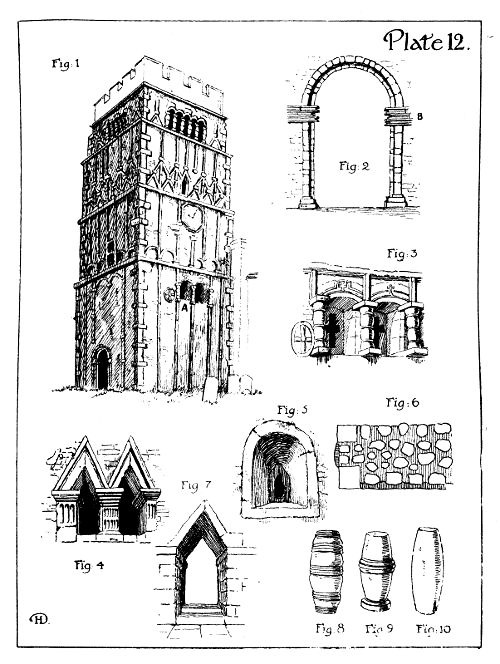 Plate 12.
Fig: 1
B
Fig: 2
Fig: 3
A
Fig: 5
Fig: 6
Fig 7
Fig 4
HD.
Fig. 8
Fig 9
Fig: 10